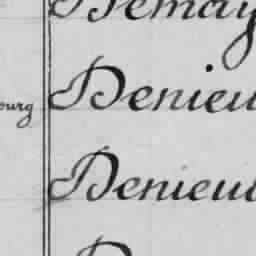 Demay
ourg
Denieu
Denieu
D